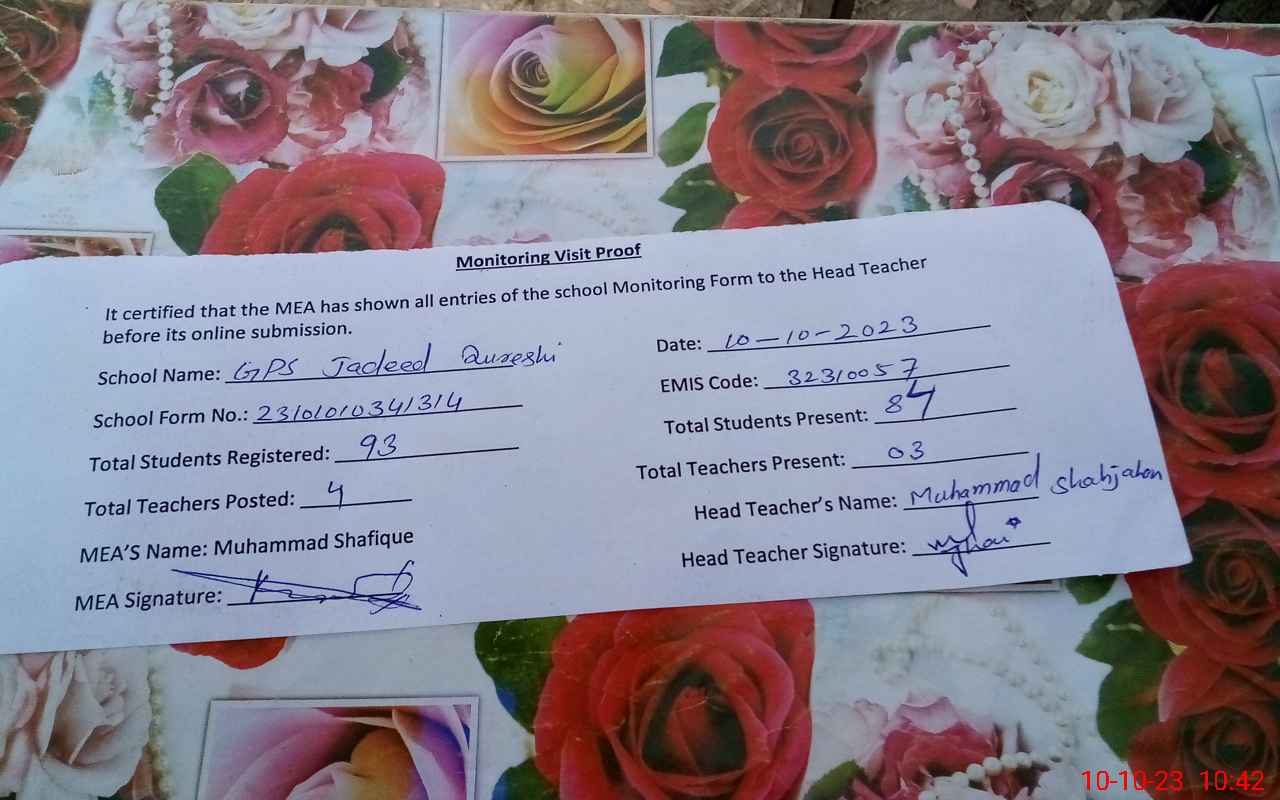 Monitoring Visit Proof
It certified that the MEA has shown all entries of the school Monitoring Form to the Head Teacher
before its online submission.
School Name: GPS Jadeed Qureshi
Date: 10-10-2023
School Form No.: 23101010341314
EMIS Code: 32310057
Total Students Registered: 93
Total Students Present: 84
Total Teachers Posted: 4
Total Teachers Present: 03
MEA'S Name: Muhammad Shafique
Head Teacher's Name: Muhammad Shahjahan
MEA Signature:
Head Teacher Signature:
10-10-23 10:42